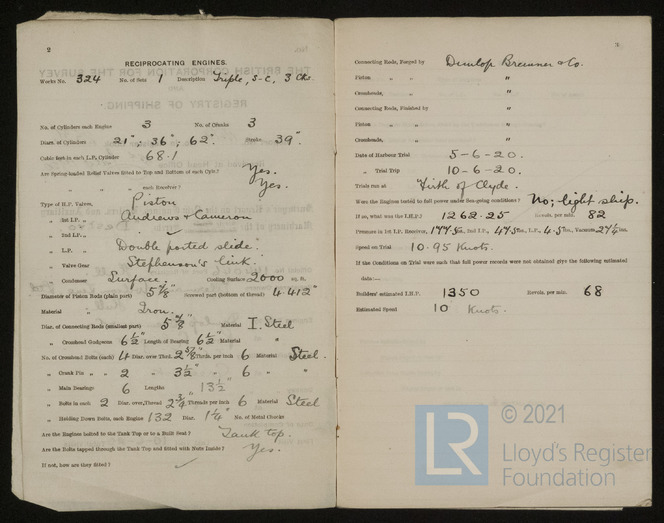 2
RECIPROCATING ENGINES.
Works No. 324 No. of Sets 1 Description Triple, S-C, 3 Cks.
No. of Cylinders each Engine 3 No. of Cranks 3
Diars. of Cylinders 21", 36", 62". Stroke 39"
Cubic feet in each L.P. Cylinder 68.1
Are Spring-loaded Relief Valves fitted to Top and Bottom of each Cylr.? Yes.
" " each Receiver? Yes.
Type of H.P. Valves, Piston
" 1st I.P. " Andrews & Cameron
" 2nd I.P. " ✓
" L.P. " Double ported slide.
" Valve Gear Stephenson's link.
" Condenser Surface. Cooling Surface 2000 sq. ft.
Diameter of Piston Rods (plain part) 5 7/8" Screwed part (bottom of thread) 4.412"
Material " Iron.
Diar. of Connecting Rods (smallest part) 5 7/8" Material I. Steel
" Crosshead Gudgeons 6 1/2" Length of Bearing 6 1/2" Material "
No. of Crosshead Bolts (each) 4 Diar. over Thrd. 2 5/8" Thrds. per inch 6 Material Steel.
" Crank Pin " " 2 " 3 1/2" " 6 " "
" Main Bearings 6 Lengths 13 1/2"
" Bolts in each 2 Diar. over Thread 2 3/4" Threads per inch 6 Material Steel
" Holding Down Bolts, each Engine 132 Diar. 1 1/4" No. of Metal Chocks
Are the Engines bolted to the Tank Top or to a Built Seat? Tank top.
Are the Bolts tapped through the Tank Top and fitted with Nuts Inside? Yes.
If not, how are they fitted? ✓
3
Connecting Rods, Forged by Dunlop Bremner & Co.
Piston " " "
Crossheads, " "
Connecting Rods, Finished by "
Piston " " "
Crossheads, " "
Date of Harbour Trial 5-6-20.
" Trial Trip 10-6-20.
Trials run at Firth of Clyde.
Were the Engines tested to full power under Sea-going conditions? No; light ship.
If so, what was the I.H.P.? 1262.25 Revols. per min. 82
Pressure in 1st I.P. Receiver, lbs., 2nd I.P., lbs., L.P., lbs., Vacuum, ins.
Speed on Trial 10.95 Knots.
If the Conditions on Trial were such that full power records were not obtained give the following estimated
data:—
Builders' estimated I.H.P. 1350 Revols. per min. 68
Estimated Speed 10 Knots.
LR
© 2021
Lloyd's Register
Foundation